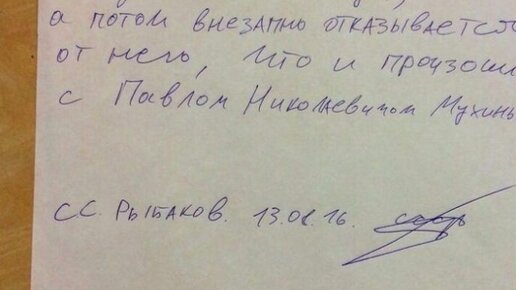 а потом внезапно отказывается
от него, что и произош
с Павлом Николаевичом Мухины
С С. РЫБАКОВ. 13.01.16.